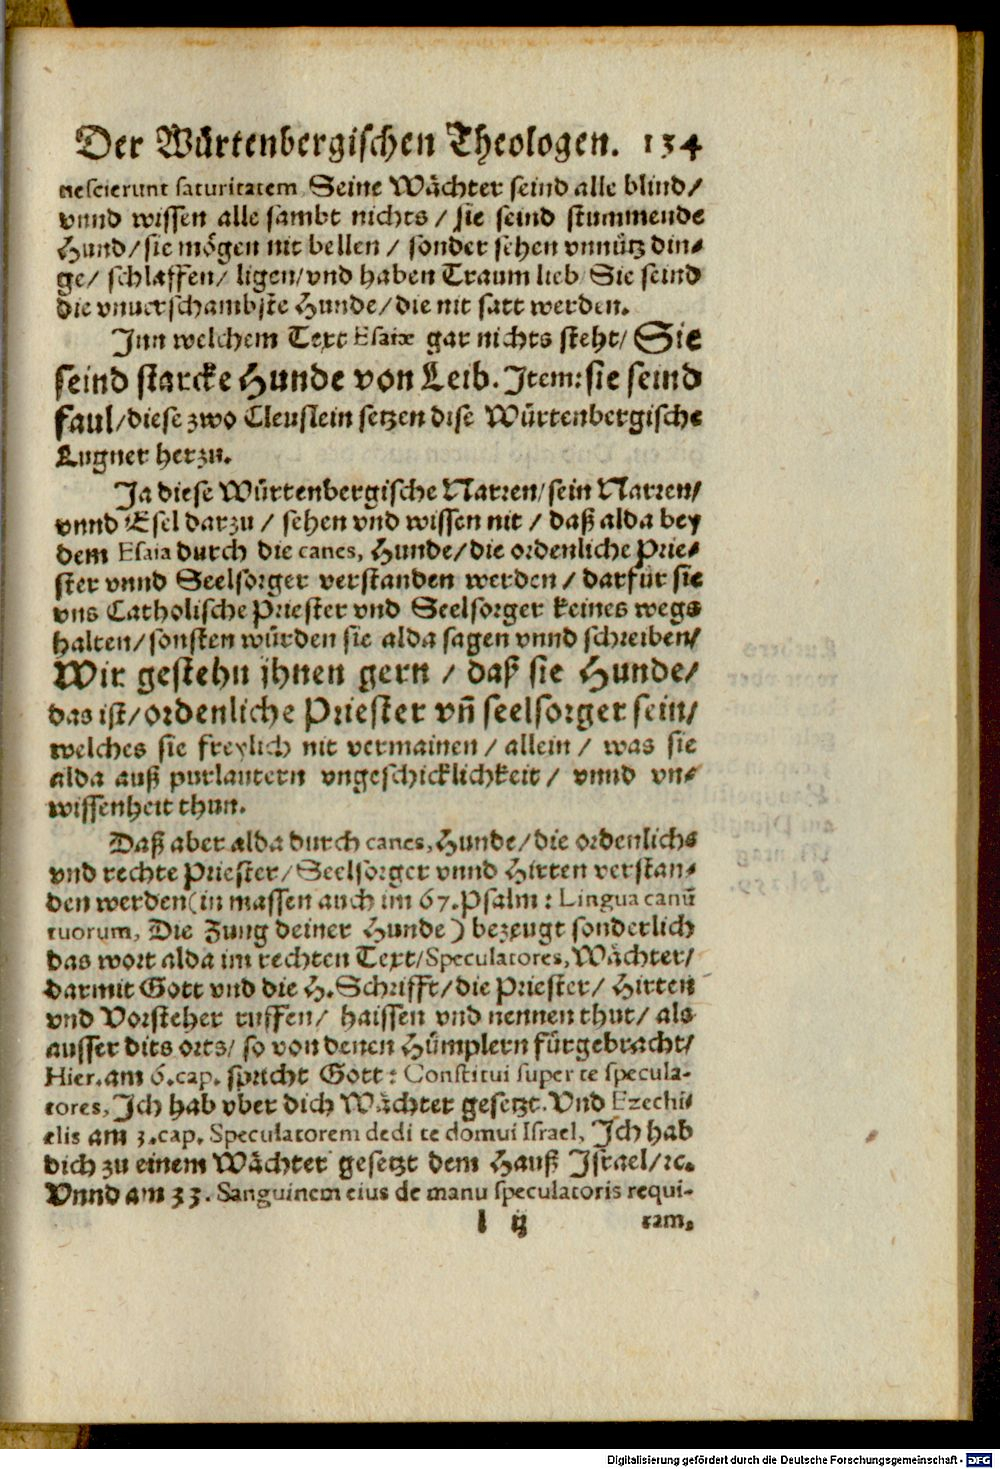 Der Würtenbergischen Theologen. 134
nescierunt saturitatem Seine Wächter seind alle blind/
vnnd wissen alle sambt nichts / sie seind stummende
Hund/sie mögen nit bellen / sonder sehen vnnütz din-
ge/ schlaffen/ ligen/vnd haben Traum lieb Sie seind
die vnuerschambste Hunde/die nit satt werden.
Inn welchem Text Esaiæ gar nichts steht/ Sie
seind starcke Hunde von Leib. Item: sie seind
faul/diese zwo Cleuslein setzen dise Würtenbergische
Lugner herzu.
Ja diese Würtenbergische Narren/sein Narren/
vnnd Esel darzu / sehen vnd wissen nit / daß alda bey
dem Esaia durch die canes, Hunde/die ordenliche Prie-
ster vnnd Seelsorger verstanden werden / darfür sie
vns Catholische Priester vnd Seelsorger keines wegs
halten/sonsten würden sie alda sagen vnnd schreiben/
Wir gestehn jhnen gern / daß sie Hunde/
das ist/ordenliche Priester vñ seelsorger sein/
welches sie freylich nit vermainen / allein / was sie
alda auß purlautern vngeschicklichkeit / vnnd vn-
wissenheit thun.
Daß aber alda durch canes, Hunde/die ordenliche
vnd rechte Priester/Seelsorger vnnd Hirten verstan-
den werden(in massen auch im 67.Psalm: Lingua canū
tuorum, Die Zung deiner Hunde) bezeugt sonderlich
das wort alda im rechten Text/Speculatores, Wächter/
darmit Gott vnd die H.Schrifft/die Priester/ Hirten
vnd Vorsteher ruffen/ haissen vnd nennen thut/ als
ausser dits orts/ so von denen Hümplern fürgebracht/
Hier.am 6.cap. spricht Gott: Constitui super te specula-
tores, Ich hab vber dich Wächter gesetzt. Vnd Ezechi-
elis am 3.cap. Speculatorem dedi te domui Israel, Ich hab
dich zu einem Wächter gesetzt dem Hauß Israel/ꝛc.
Vnnd am 33. Sanguinem eius de manu speculatoris requi-
l ij ram.
Digitalisierung gefördert durch die Deutsche Forschungsgemeinschaft - DFG